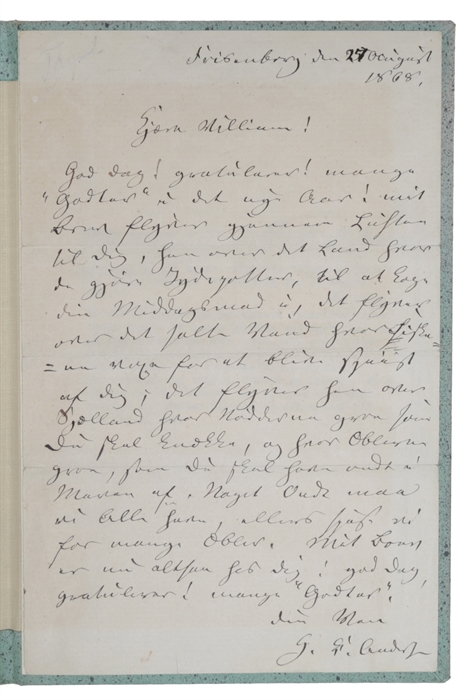 Frisenborg den 27 August
1868.
Kjære William!
God dag! gratulerer! mange
"Godter" i det nye Aar! mit
Brev flyver gjennem Luften
til Dig, hen over det Land hvor
de gjøre Jydepotter, til at koge
din Middagsmad i, det flyver
over det salte Vand hvor Fiske=
=ne voxe for at blive spiist
af Dig; det flyver hen over
Sjælland hvor Nødderne groe som
Du skal knække, og hvor Æblerne
groe, som Du skal have ondt i
Maven af. Noget Ondt maa
vi Alle have, ellers vi
for mange Æbler. Mit Brev
er nu altsaa hos Dig! god dag
gratulerer! mange "Godter"!
din Ven
H. C. Andersen